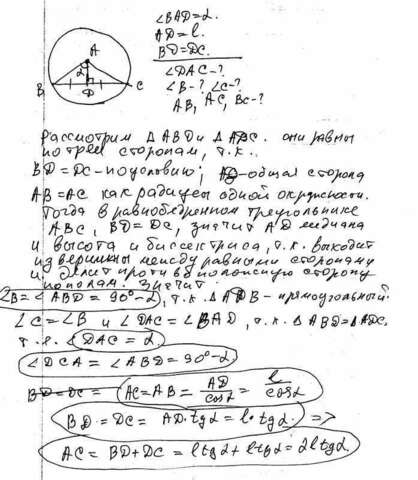 ∠BAD=α.
AD=l.
BD=DC.
∠DAC-?
∠B-? ∠C-?
AB, AC, BC-?
A
α
B
D
C
Рассмотрим △ABD и △ADC. они равны
по трем сторонам, т.к.
BD=DC-по условию; AD-общая сторона
AB=AC как радиусы одной окружности.
Тогда в равнобедренном треугольнике
ABC, BD=DC, значит AD медиана
и высота и биссектриса, т.к. выходит
из вершины между равными сторонами
и делит противоположную сторону
пополам. Значит
∠B=∠ABD=90°-α, т.к. △ADB-прямоугольный.
∠C=∠B и ∠DAC=∠BAD, т.к. △ABD=△ADC.
т.е. ∠DAC=α
∠DCA=∠ABD=90°-α.
BD=DC= AC=AB=AD/cosα=l/cosα
BD=DC=AD·tgα=l·tgα. =>
AC=BD+DC=ltgα+ltgα=2ltgα.